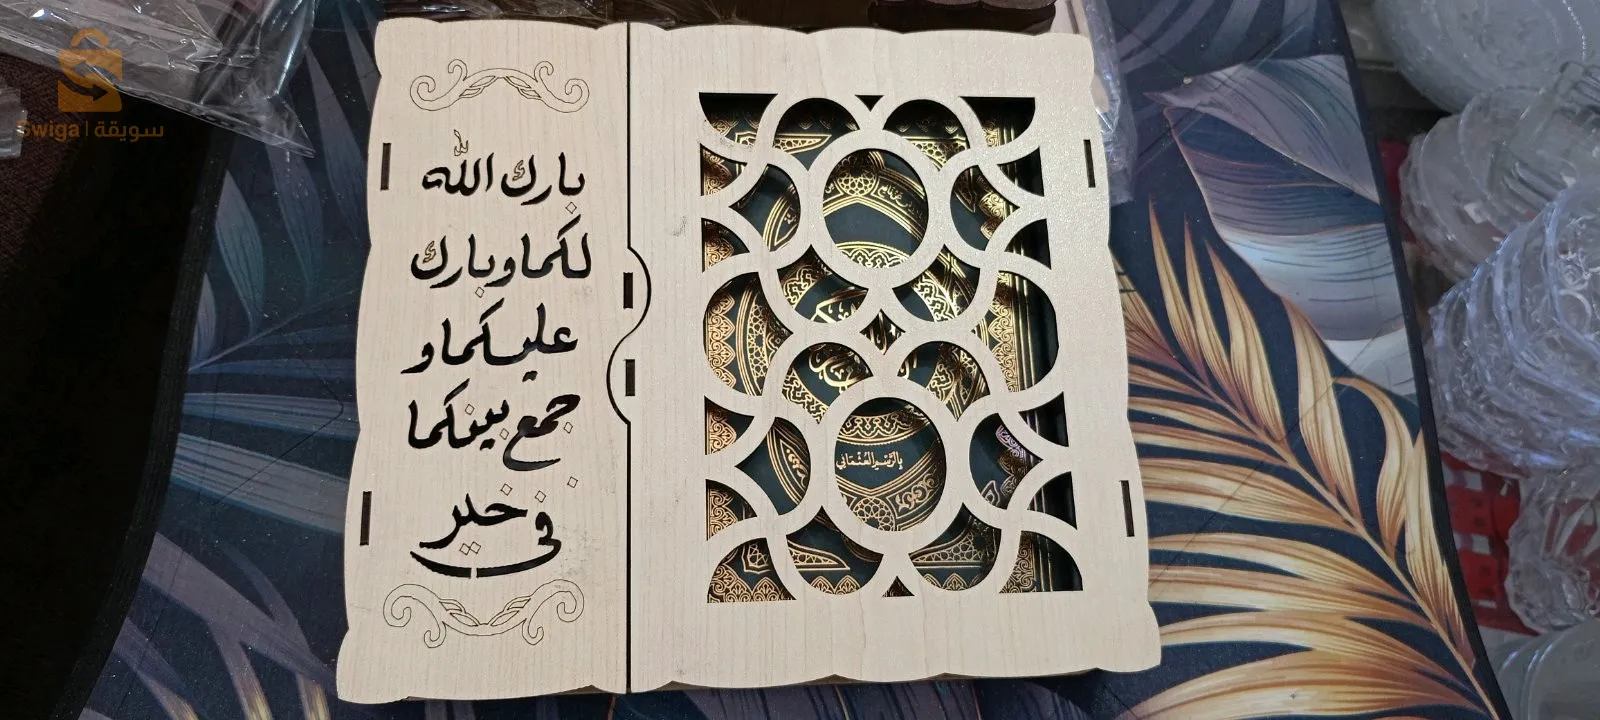 Swiga | سويقة
بارك الله
لكما وبارك
عليكما و
جمع بينكما
في خير
بالرسم العثماني